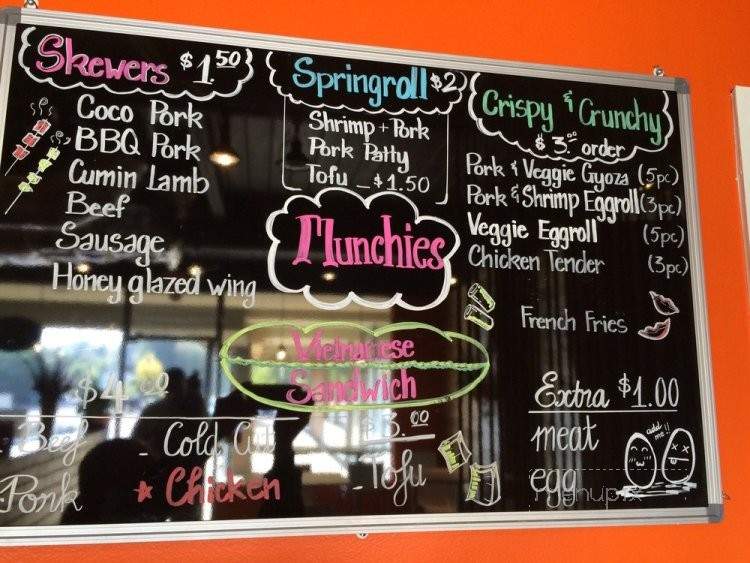 Skewers $1.50
Coco Pork
BBQ Pork
Cumin Lamb
Beef
Sausage
Honey glazed wing
Springroll $2
Shrimp + Pork
Pork Patty
Tofu - $1.50
Munchies
Crispy & Crunchy
$3.00 order
Pork & Veggie Gyoza (5pc)
Pork & Shrimp Eggroll (3pc)
Veggie Eggroll (5pc)
Chicken Tender (3pc)
French Fries
Vietnamese
Sandwich
$4.00
- Beef - Cold Cut
Pork ★ Chicken
$3.00
- Tofu
Extra $1.00
meat
egg
add me!!
menupix